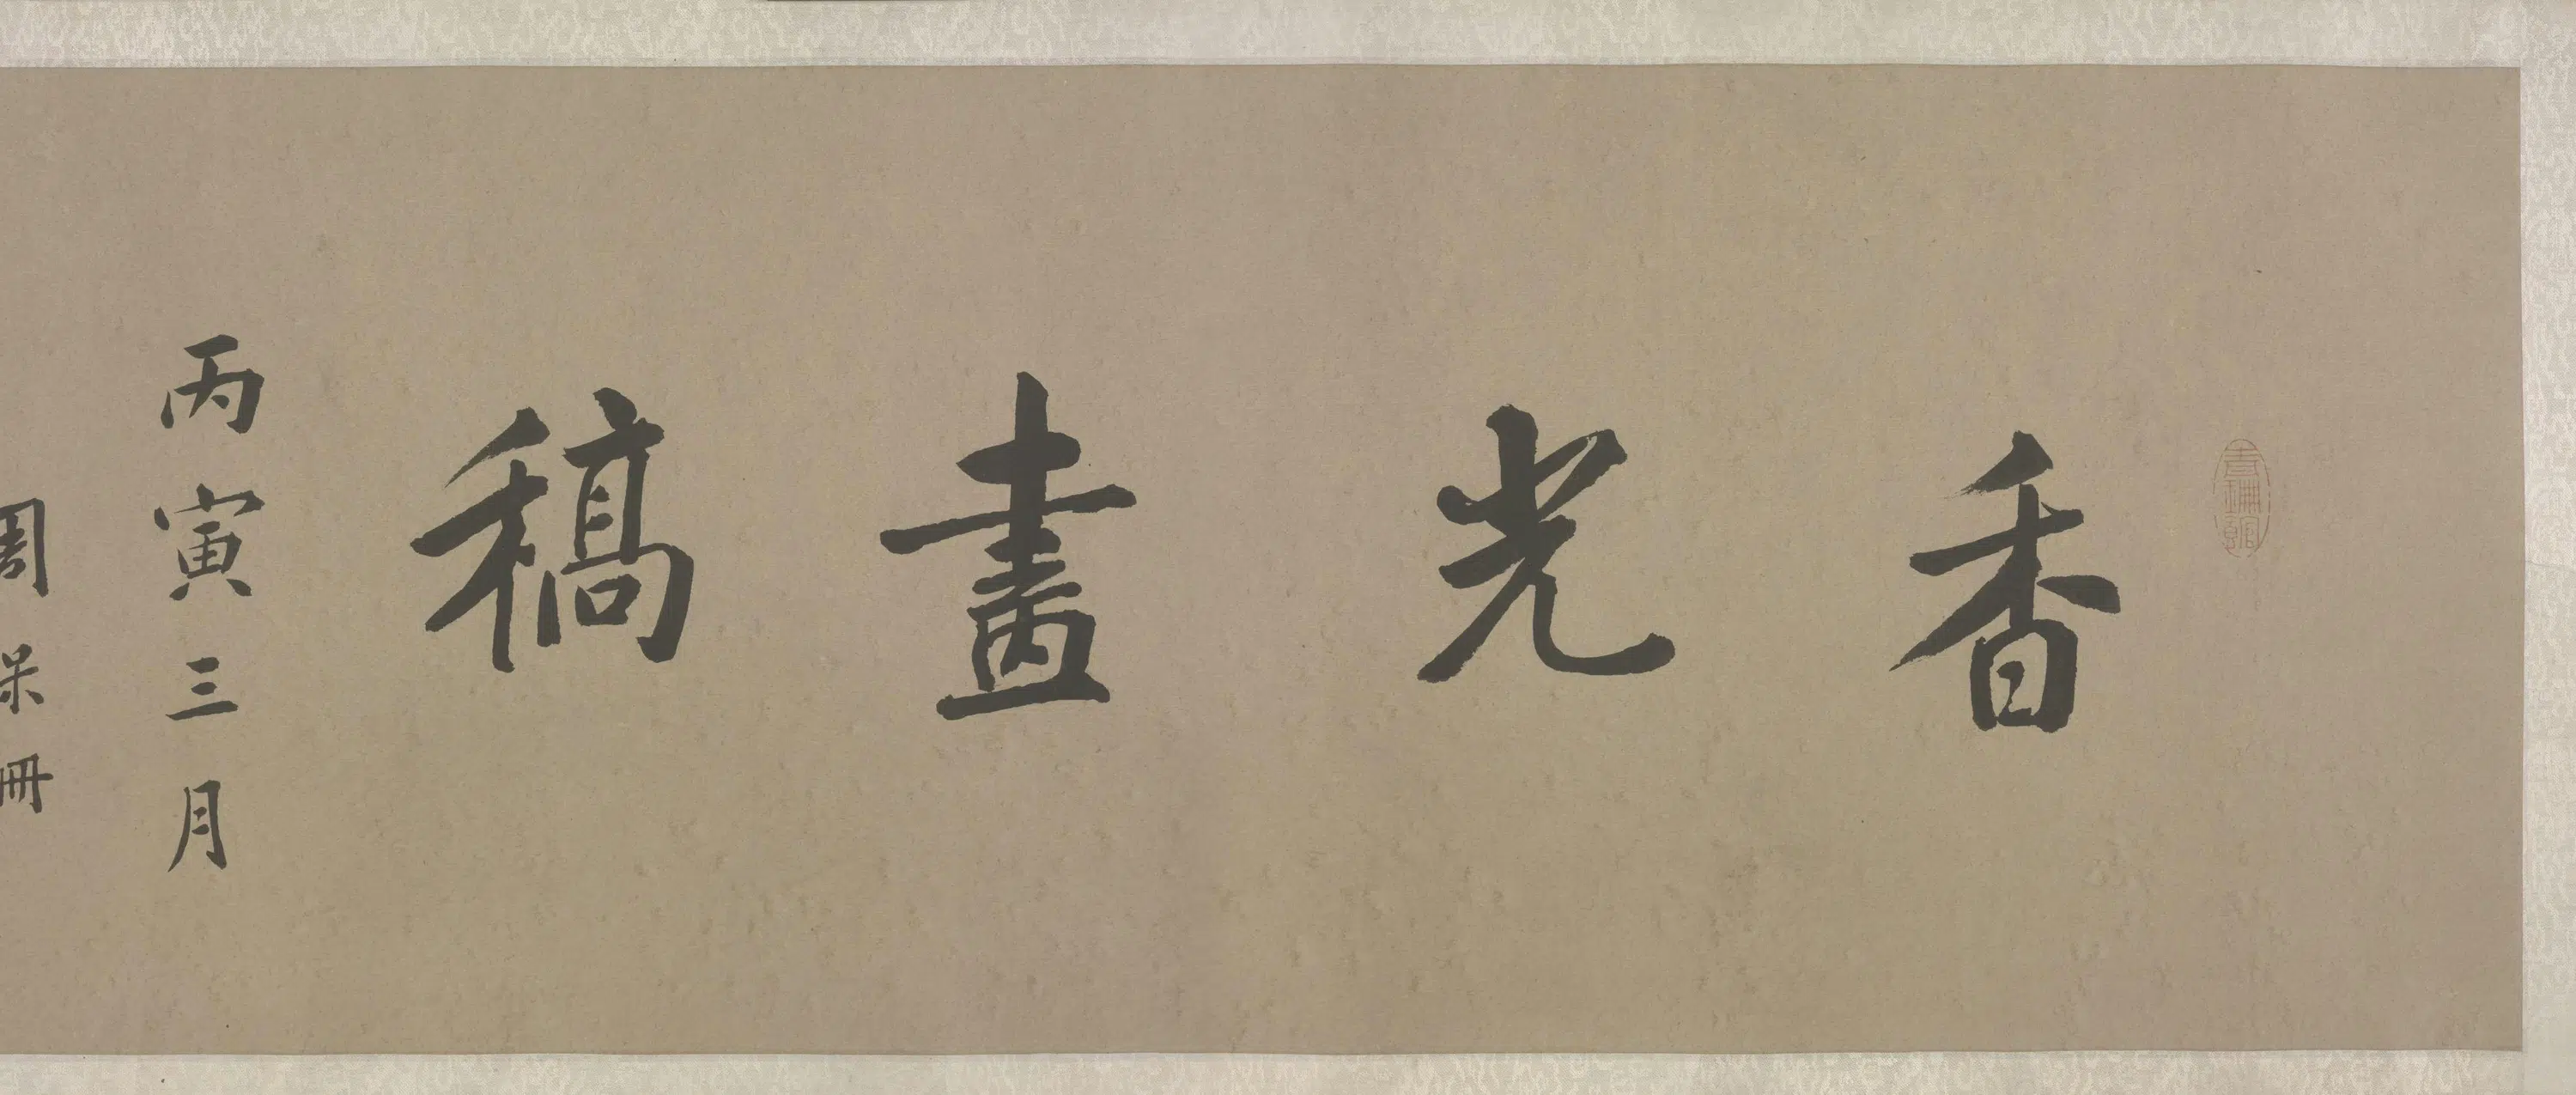 香光畫稿
丙寅三月
周杲冊